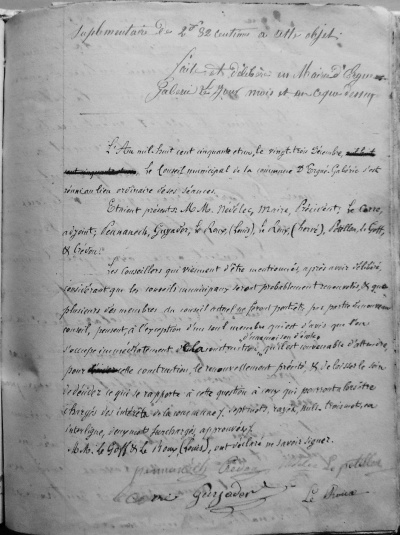 Suplementaire de 2 fr 82 centime à cette objet.
Fait et délibéré en Mairie d'Ergué-
Gabéric le jour mois et an que dessus
L'An mil huit cent cinquante et un, le vingt trois Décembre,
le Conseil municipal de la commune d'Ergué-Gabéric s'est
réuni au lieu ordinaire de ses séances.
Etaient présents M.M. Nédélec, Maire, Président, Le Corre,
adjoint, Jeannanech, Guyader, Le Roux, (Louis), Le Roux, (Hervé), Pétillon, Le Goff,
& Credou.
Les Conseillers qui viennent d'être mentionnés, après avoir délibéré,
considérant que les conseils municipaux seront probablement renouvelés, & que
plusieurs des membres du conseil actuel ne feront peut-être pas partie du nouveau
conseil, pensent, à l'exception d'un seul membre qui est d'avis que l'on
s'occupe immédiatement de la construction d'une maison d'école, qu'il est convenable d'attendre,
pour cette construction, le renouvellement précité, & de laisser le soin
de décider ce qui se rapporte à cette question à ceux qui pourront être
chargés des intérêts de la commune. rayés nuls. trois mots en
interligne, surchargés, approuvés.
M.M. Le Goff & Le Roux (Louis), ont déclaré ne savoir signer.
Credou Le pétillon
Le Corre Guyader Le Roux